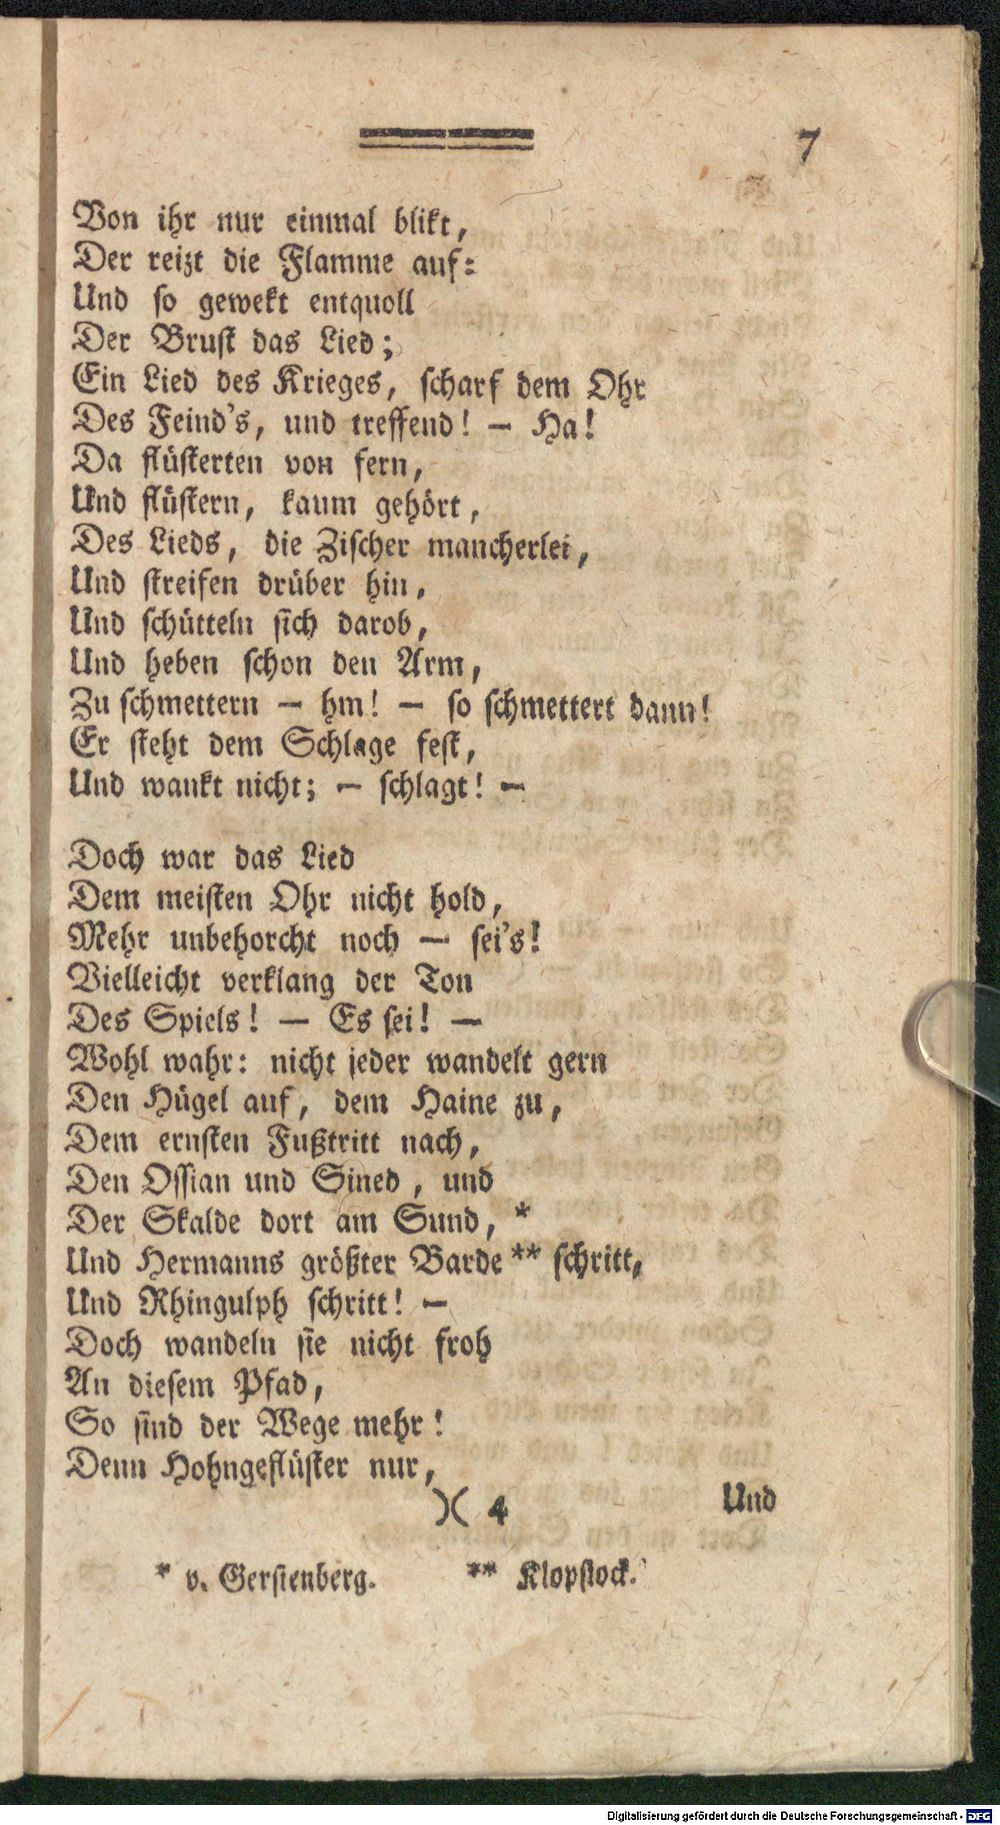 7
Von ihr nur einmal blikt,
Der reizt die Flamme auf:
Und so gewekt entquoll
Der Brust das Lied;
Ein Lied des Krieges, scharf dem Ohr
Des Feind's, und treffend! — Ha!
Da flüsterten von fern,
Und flüstern, kaum gehört,
Des Lieds, die Zischer mancherlei,
Und streifen drüber hin,
Und schütteln sich darob,
Und heben schon den Arm,
Zu schmettern — hm! — so schmettert dann!
Er steht dem Schlage fest,
Und wankt nicht; — schlagt! —
Doch war das Lied
Dem meisten Ohr nicht hold,
Mehr unbehorcht noch — sei's!
Vielleicht verklang der Ton
Des Spiels! — Es sei! —
Wohl wahr: nicht jeder wandelt gern
Den Hügel auf, dem Haine zu,
Dem ernsten Fußtritt nach,
Den Ossian und Sined, und
Der Skalde dort am Sund, *
Und Hermanns größter Barde ** schritt,
Und Rhingulph schritt! —
Doch wandeln sie nicht froh
An diesem Pfad,
So sind der Wege mehr!
Denn Hohngeflüster nur,
)( 4 Und
* v. Gerstenberg. ** Klopstock.
Digitalisierung gefördert durch die Deutsche Forschungsgemeinschaft - DFG